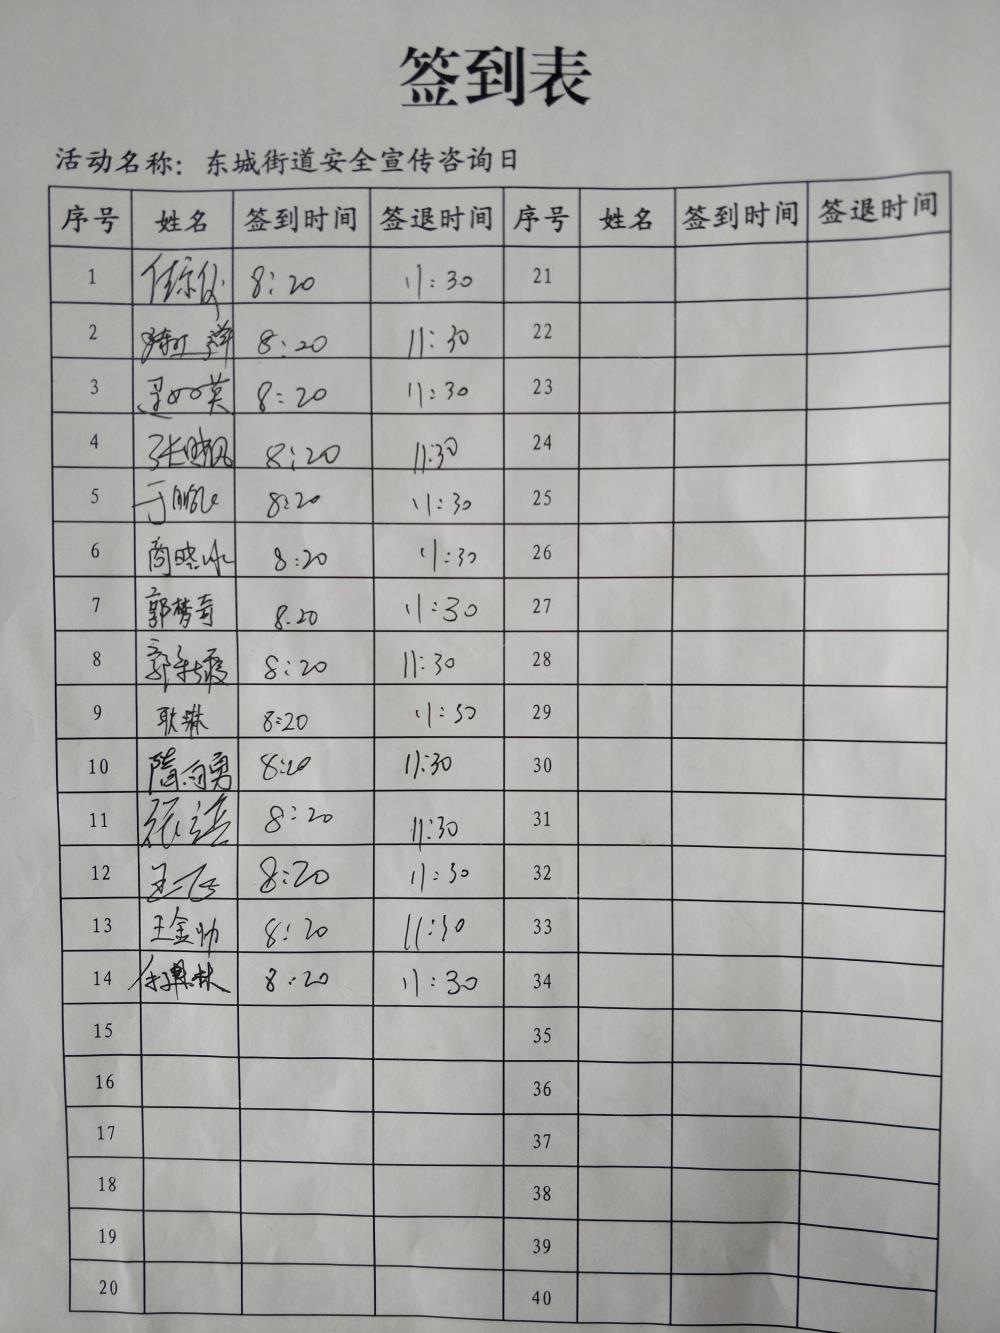 签到表
活动名称：东城街道安全宣传咨询日
序号 姓名 签到时间 签退时间 序号 姓名 签到时间 签退时间
1 8:20 11:30 21
2 8:20 11:30 22
3 8:20 11:30 23
4 张晓枫 8:20 11:30 24
5 于鹏飞 8:20 11:30 25
6 商晓冰 8:20 11:30 26
7 郭梦奇 8.20 11:30 27
8 郭 8:20 11:30 28
9 耿琳 8:20 11:30 29
10 隋向勇 8:20 11:30 30
11 张 8:20 11:30 31
12 王 8:20 11:30 32
13 王金帅 8:20 11:30 33
14 8:20 11:30 34
15 35
16 36
17 37
18 38
19 39
20 40